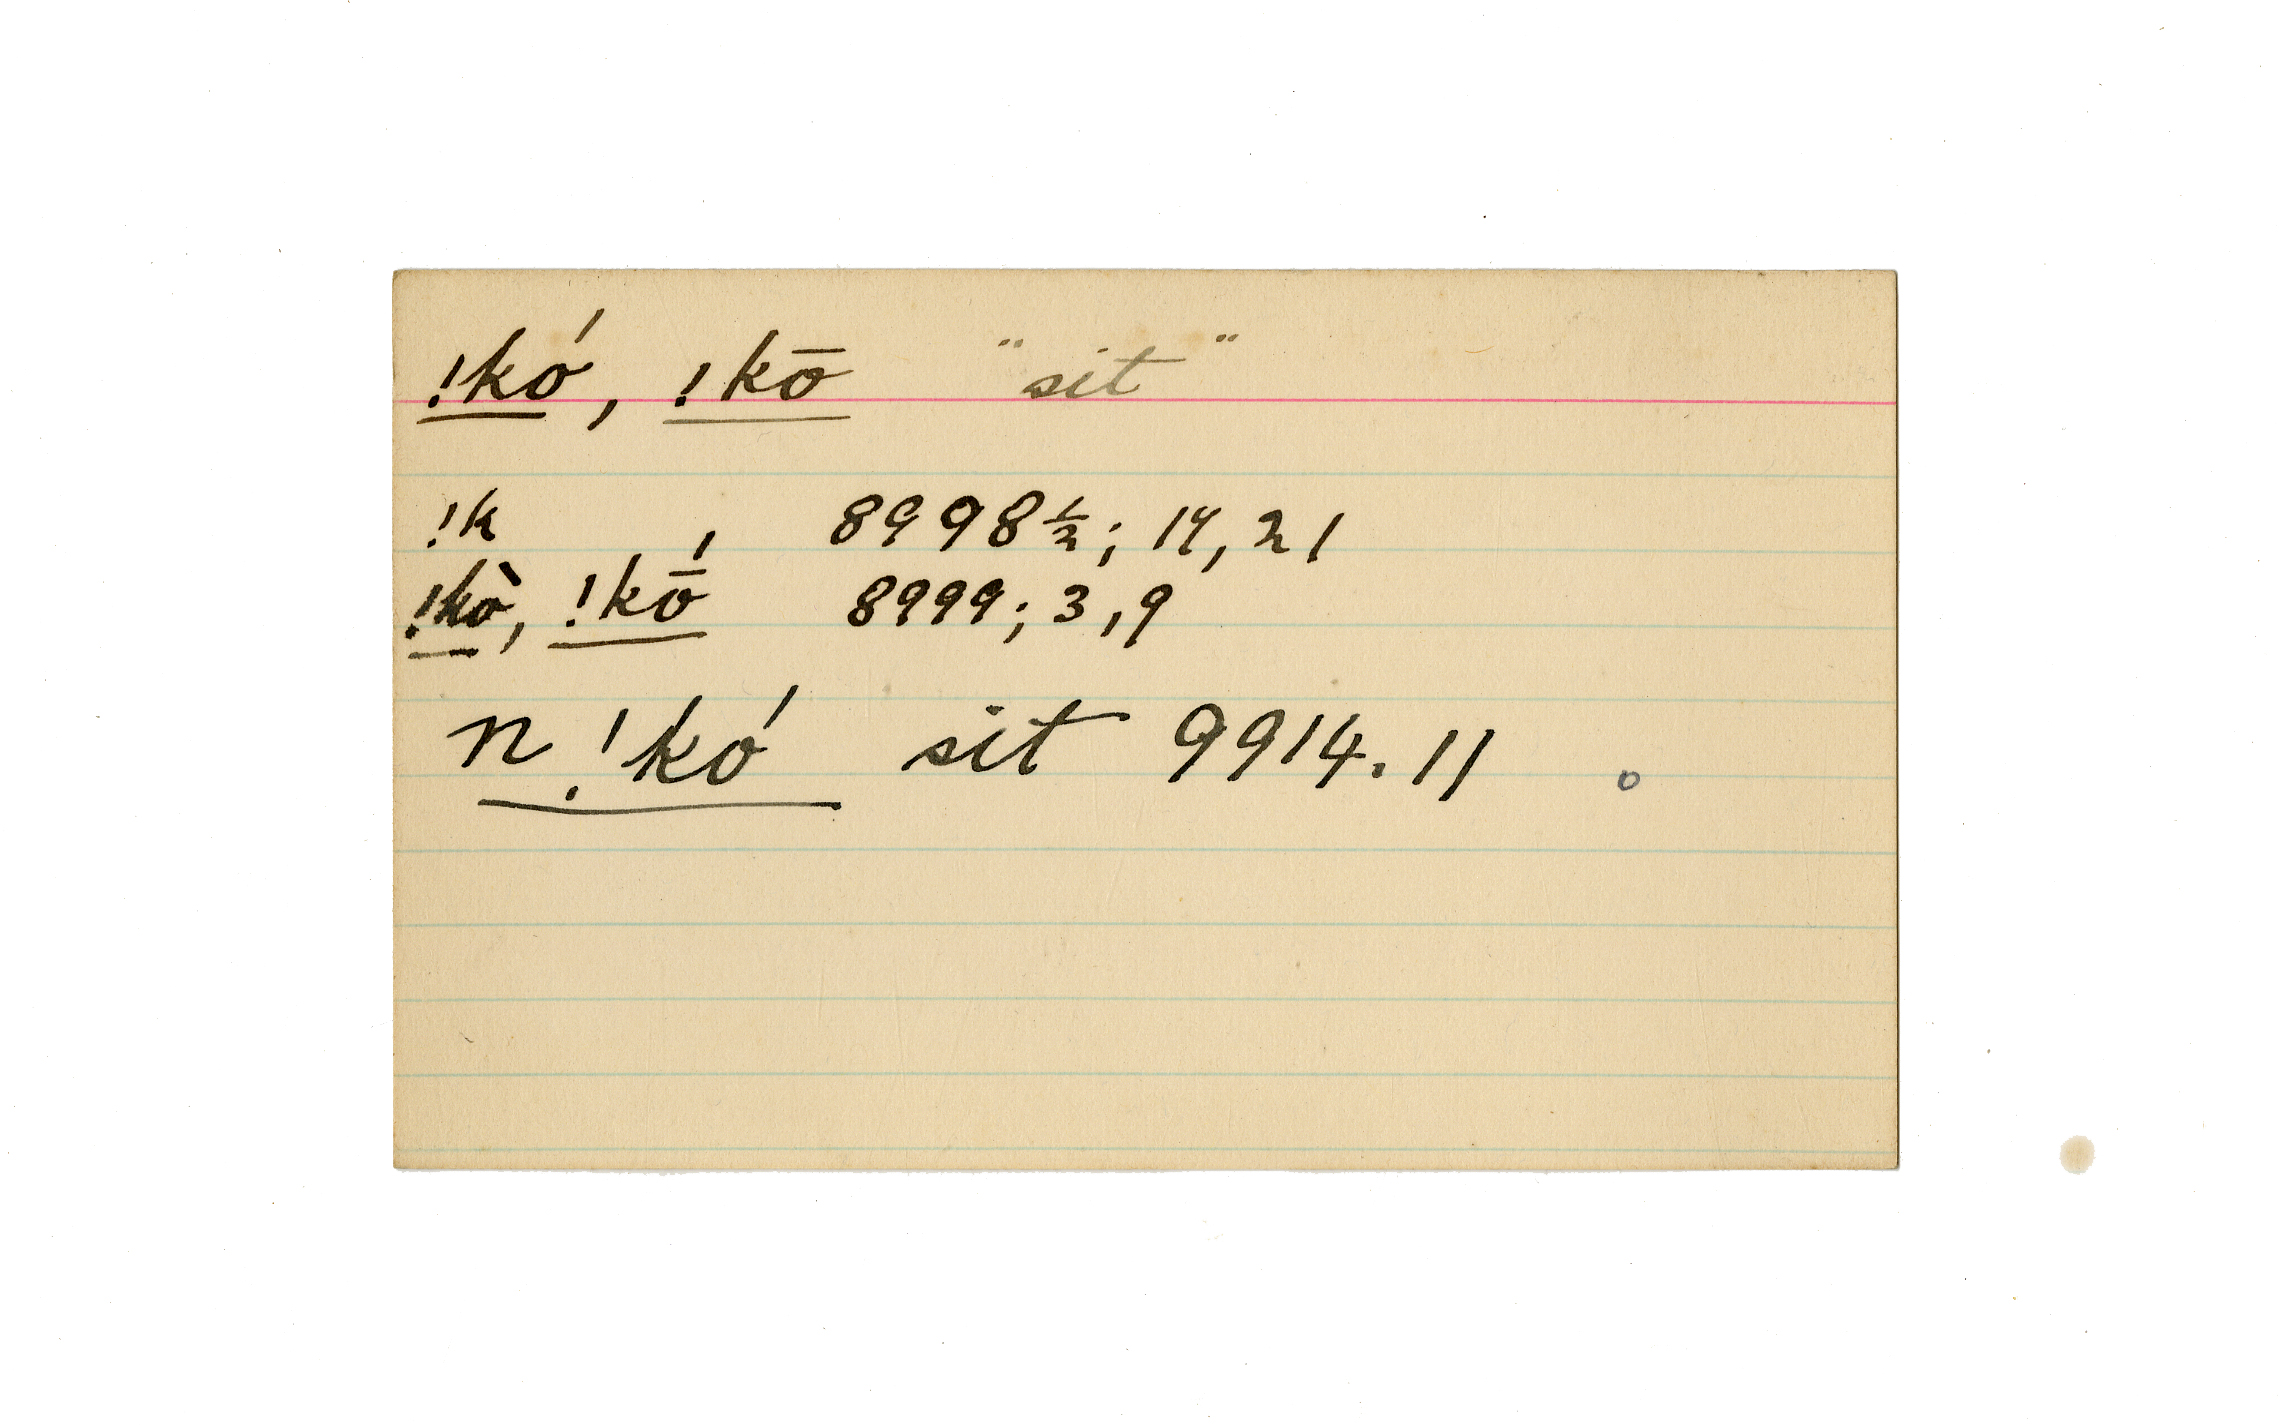 !kó, !kō "sit"
!k 8998½; 14, 21
!kò, !kṓ 8999; 3, 9
n !kó sit 9914. 11 o